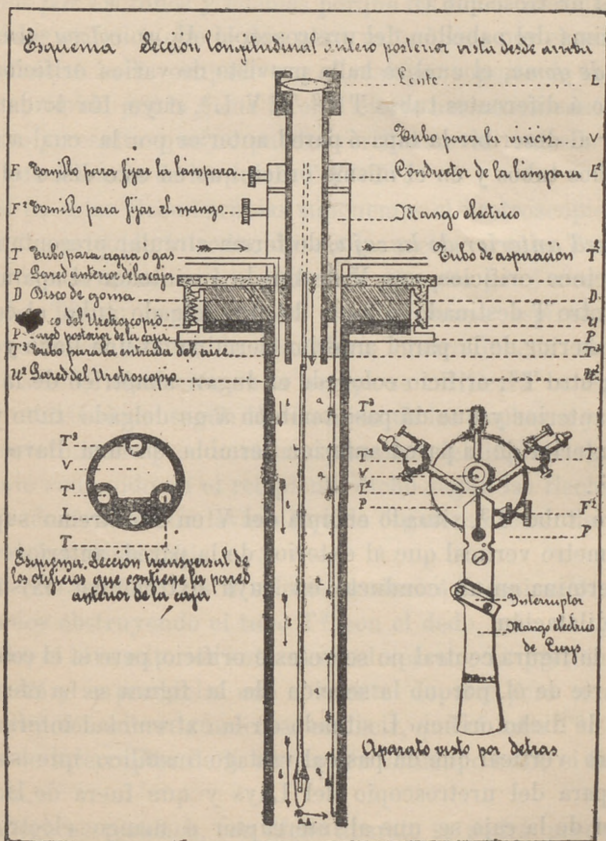 Esquema Sección longitudinal antero posterior vista desde arriba
Lente L
Tubo para la visión V
F Tornillo para fijar la lámpara
Conductor de la lámpara L²
F² Tornillo para fijar el mango
Mango electrico
T Tubo para agua o gas
Tubo de aspiración T²
P Pared anterior de la caja P
D Disco de goma D
co del Uretroscopio U
P ared posterior de la caja P
T³ Tubo para la entrada del aire T³
U² Pared del Uretroscopio U²
T³
V
T²
L
T
Esquema, Sección transversal de
los orificios que contiene la pared
anterior de la caja
T³
T
V
L²
F²
P
Interruptor
Mango electrico
de
Aparato visto por detras